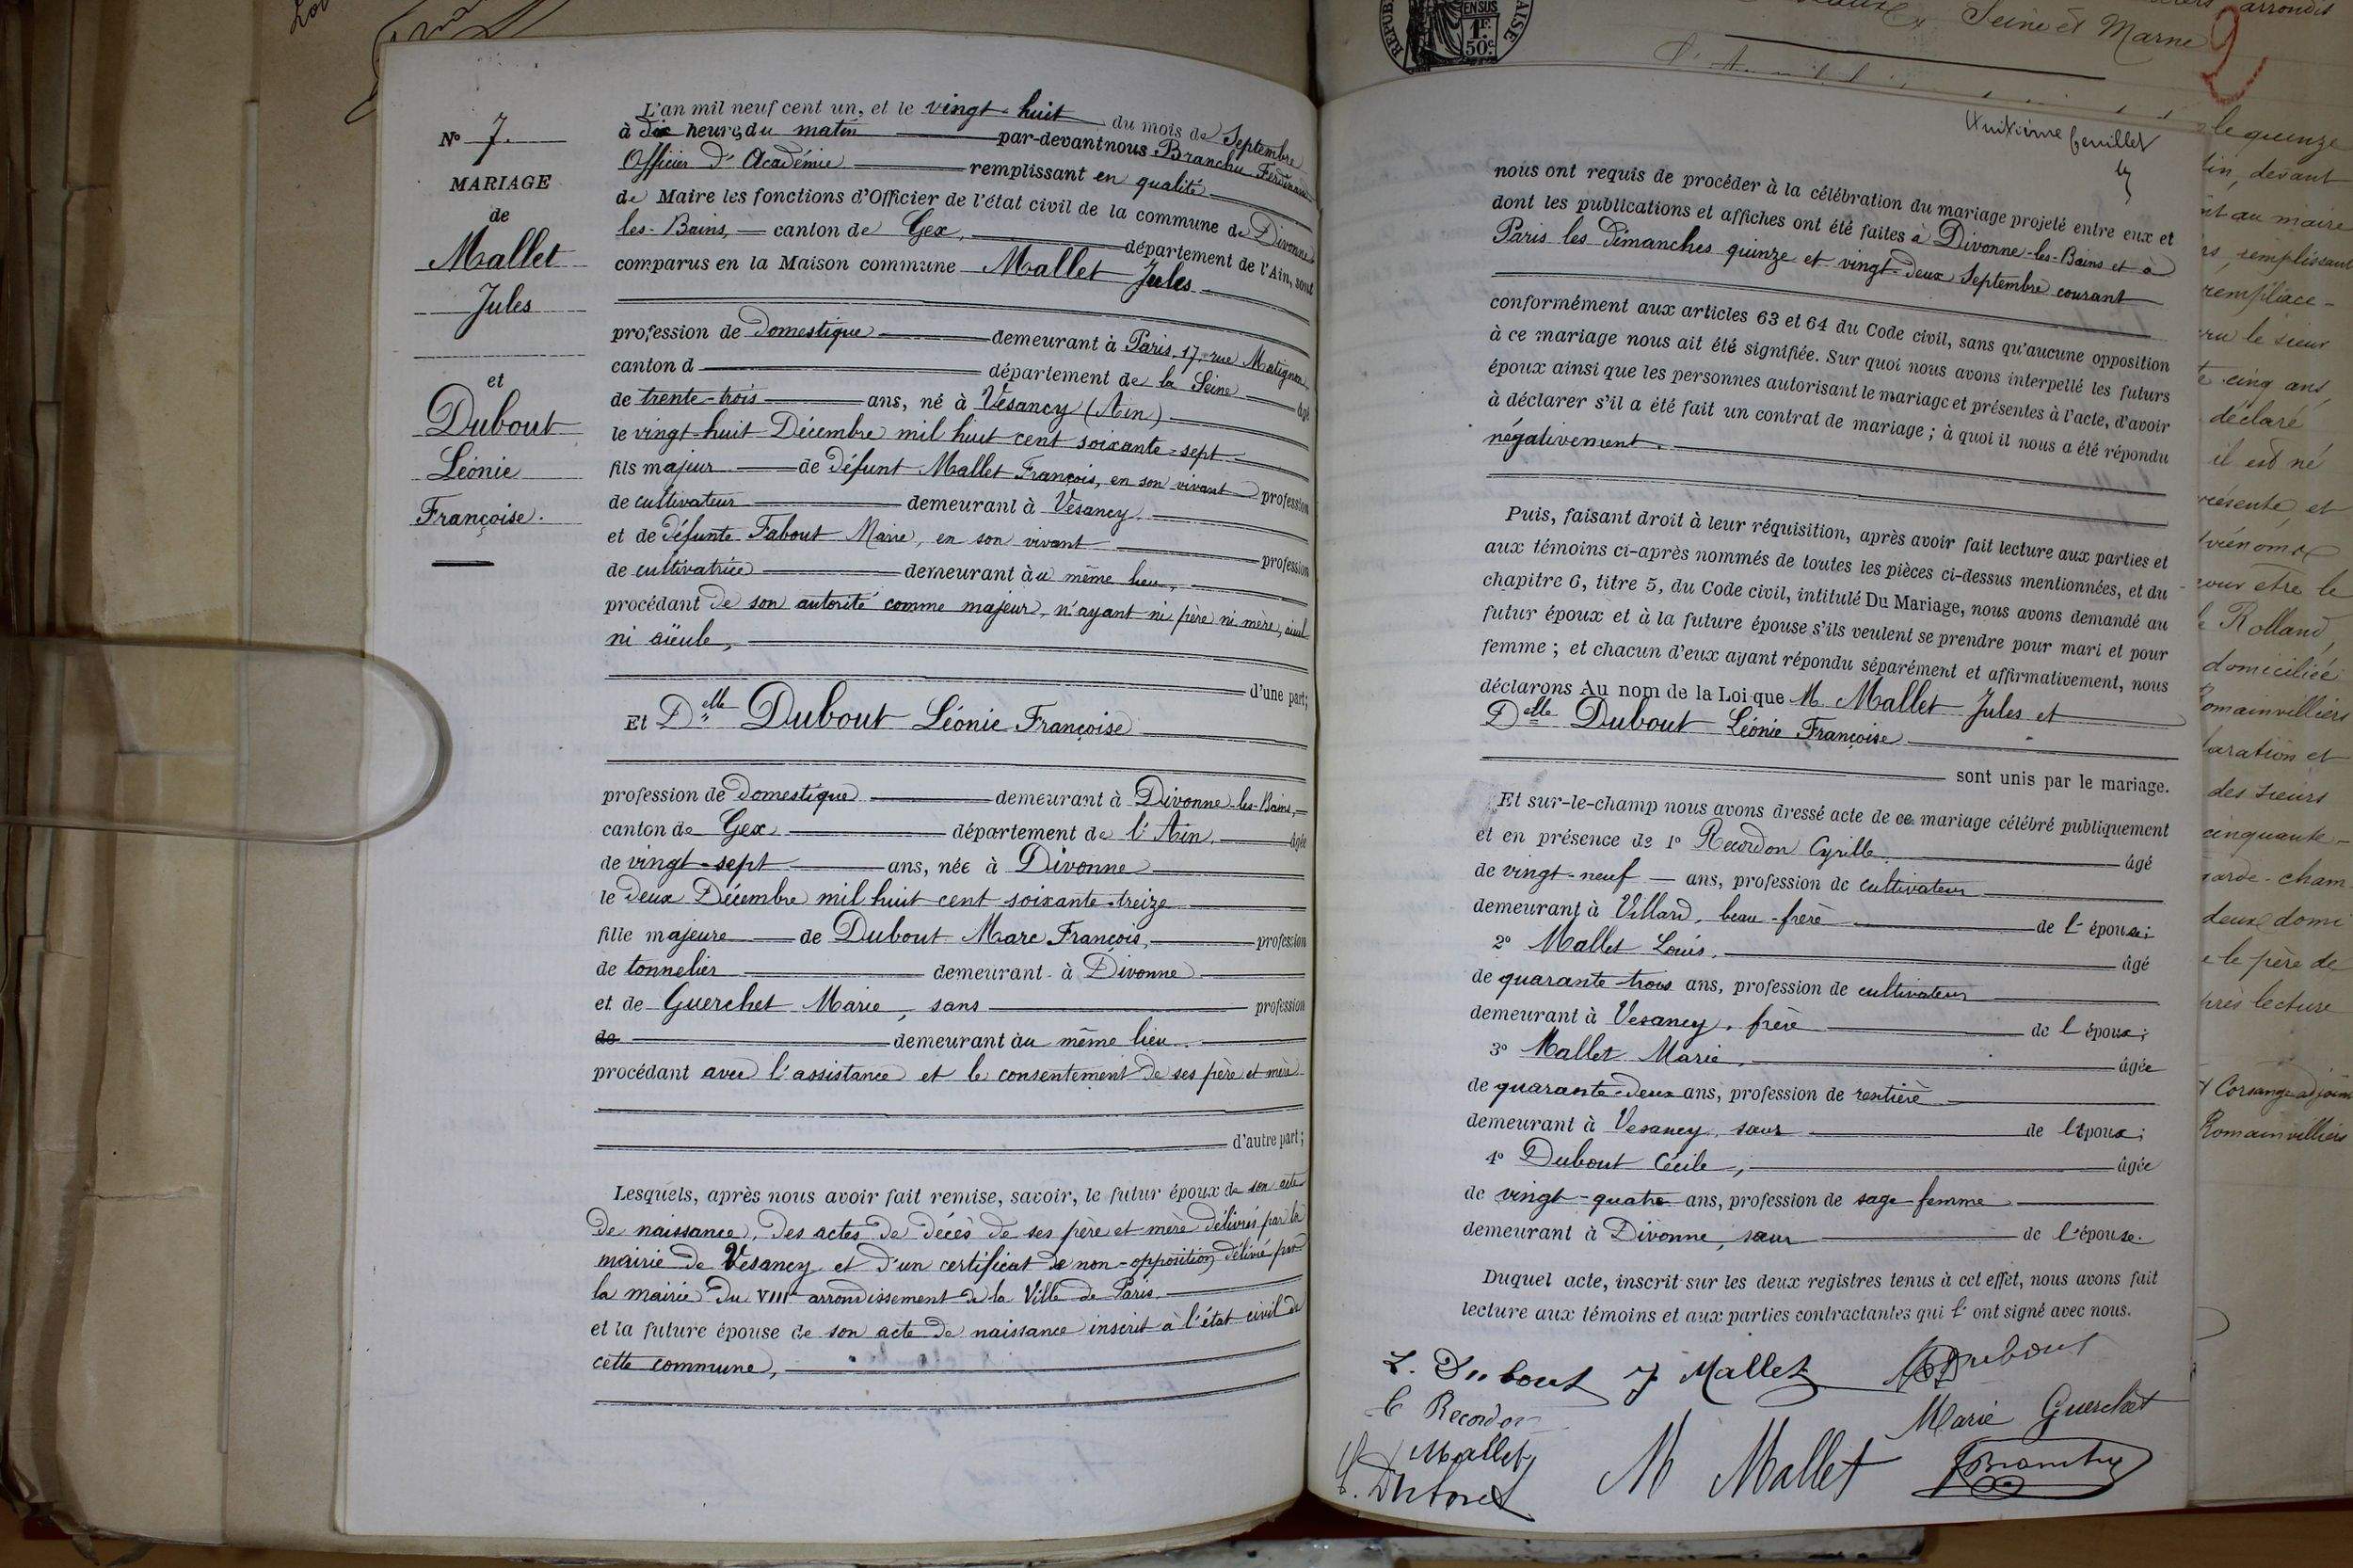 N° 7.
MARIAGE
de
Mallet
Jules
et
Dubout
Léonie
Françoise.
L'an mil neuf cent un, et le vingt-huit du mois de Septembre
à dix heures du matin par-devant nous Branchu Ferdinand
Officier d'Académie remplissant en qualité
de Maire les fonctions d'Officier de l'état civil de la commune de Divonne
les-Bains, canton de Gex, département de l'Ain, sont
comparus en la Maison commune Mallet Jules
profession de domestique demeurant à Paris, 17, rue Matignon
canton d département de la Seine âgé
de trente-trois ans, né à Vesancy (Ain)
le vingt-huit Décembre mil huit cent soixante-sept
fils majeur de défunt Mallet François, en son vivant profession
de cultivateur demeurant à Vesancy
et de défunte Fabout Marie, en son vivant profession
de cultivatrice demeurant au même lieu,
procédant de son autorité comme majeur, n'ayant ni père ni mère, aieul
ni aïeule,
d'une part;
Et Delle Dubout Léonie Françoise
profession de domestique demeurant à Divonne-les-Bains,
canton de Gex département de l'Ain. âgée
de vingt-sept ans, née à Divonne
le deux Décembre mil huit cent soixante-treize
fille majeure de Dubout Marc François, profession
de tonnelier demeurant à Divonne
et de Guerchet Marie, sans profession
de demeurant au même lieu.
procédant avec l'assistance et le consentement de ses père et mère
d'autre part;
Lesquels, après nous avoir fait remise, savoir, le futur époux de son acte
de naissance, des actes de décès de ses père et mère délivrés par la
mairie de Vesancy et d'un certificat de non-opposition délivré par
la mairie du VIIIe arrondissement de la Ville de Paris.
et la future épouse de son acte de naissance inscrit à l'état civil de
cette commune,
RÉPUB
EN SUS
1F.
50c.
AISE
Seine et Marne
arrondis
2
huitième feuillet
nous ont requis de procéder à la célébration du mariage projeté entre eux et
dont les publications et affiches ont été faites à Divonne-les-Bains et à
Paris les dimanches quinze et vingt-deux Septembre courant
conformément aux articles 63 et 64 du Code civil, sans qu'aucune opposition
à ce mariage nous ait été signifiée. Sur quoi nous avons interpellé les futurs
époux ainsi que les personnes autorisant le mariage et présentes à l'acte, d'avoir
à déclarer s'il a été fait un contrat de mariage; à quoi il nous a été répondu
négativement.
Puis, faisant droit à leur réquisition, après avoir fait lecture aux parties et
aux témoins ci-après nommés de toutes les pièces ci-dessus mentionnées, et du
chapitre 6, titre 5, du Code civil, intitulé Du Mariage, nous avons demandé au
futur époux et à la future épouse s'ils veulent se prendre pour mari et pour
femme; et chacun d'eux ayant répondu séparément et affirmativement, nous
déclarons Au nom de la Loi que M. Mallet Jules et
Delle Dubout Léonie Françoise
sont unis par le mariage.
Et sur-le-champ nous avons dressé acte de ce mariage célébré publiquement
et en présence de 1° Recordon Cyrille, âgé
de vingt-neuf ans, profession de cultivateur
demeurant à Villard, beau-frère de l'épouse;
2° Mallet Louis, âgé
de quarante-trois ans, profession de cultivateur
demeurant à Vesancy, frère de l'époux;
3° Mallet Marie, âgée
de quarante-deux ans, profession de rentière
demeurant à Vesancy, sœur de l'époux;
4° Dubout Cécile, âgée
de vingt-quatre ans, profession de sage-femme
demeurant à Divonne, sœur de l'épouse.
Duquel acte, inscrit sur les deux registres tenus à cet effet, nous avons fait
lecture aux témoins et aux parties contractantes qui l'ont signé avec nous.
L. Dubout J. Mallet Dubout
C Recordon Marie Guerchet
Mallet M Mallet Branchu
C. Dubout
le quinze
devant
au maire
remplissant
remplace-
le sieur
cinq ans,
déclaré
il est né
présente et
prénoms
pour être le
Rolland,
domiciliée
Romainvilliers
laration et
des sieurs
cinquante-
garde-cham
deux domi
le père de
près lecture
Corsange adjoint
Romainvilliers